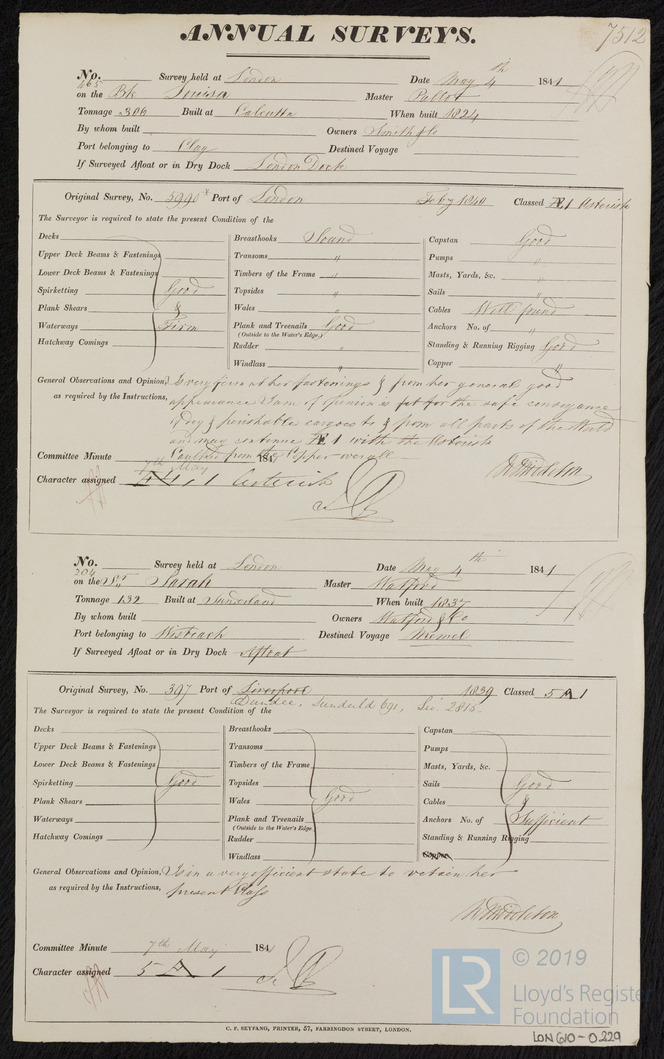 ANNUAL SURVEYS.
7512
No. 465 Survey held at London Date May 4th 1841
on the Bk Luisa Master Pallot
Tonnage 306 Built at Calcutta When built 1824
By whom built Owners Smith & Co
Port belonging to Clay Destined Voyage
If Surveyed Afloat or in Dry Dock London Dock
Original Survey, No. 5990 Port of London Feby 1840 Classed Æ 1 Asterisk
The Surveyor is required to state the present Condition of the
Decks
Upper Deck Beams & Fastenings
Lower Deck Beams & Fastenings
Spirketting Good
Plank Shears &
Waterways Firm
Hatchway Comings
Breasthooks Sound
Transoms "
Timbers of the Frame "
Topsides "
Wales "
Plank and Treenails Good
(Outside to the Water's Edge,)
Rudder "
Windlass "
Capstan Good
Pumps "
Masts, Yards, &c. "
Sails "
Cables Well found
Anchors No. of "
Standing & Running Rigging Good
Copper "
General Observations and Opinion, Is very firm at her fastenings & from her general good
as required by the Instructions, appearance I am of opinion is fit for the safe conveyance
of dry & perishable cargoes to & from all parts of the World
and may continue Æ 1 with the Asterisk
Caulked from the Copper
Committee Minute 7th May 1841
Character assigned Æ 1 Asterisk
W Middleton
No. 304 Survey held at London Date May 4th 1841
on the Sr Sarah Master Watford
Tonnage 132 Built at Sunderland When built 1837
By whom built Owners Watford & Co
Port belonging to Wisbeach Destined Voyage Memel
If Surveyed Afloat or in Dry Dock Afloat
Original Survey, No. 397 Port of Liverpool 1839 Classed 5 A 1
Dundee, Sunderld 691, Liv. 2815
The Surveyor is required to state the present Condition of the
Decks
Upper Deck Beams & Fastenings
Lower Deck Beams & Fastenings
Spirketting Good
Plank Shears
Waterways
Hatchway Comings
Breasthooks
Transoms
Timbers of the Frame
Topsides
Wales Good
Plank and Treenails
(Outside to the Water's Edge
Rudder
Windlass
Capstan
Pumps
Masts, Yards, &c.
Sails Good
Cables &
Anchors No. of Sufficient
Standing & Running Rigging
General Observations and Opinion, Is in a very efficient state to retain her
as required by the Instructions, present Class
W Middleton
Committee Minute 7th May 184
Character assigned 5 A 1
C. F. SEYFANG, PRINTER, 57, FARRINGDON STREET, LONDON.
LR
© 2019
Lloyd's Register
Foundation
LON610-0229